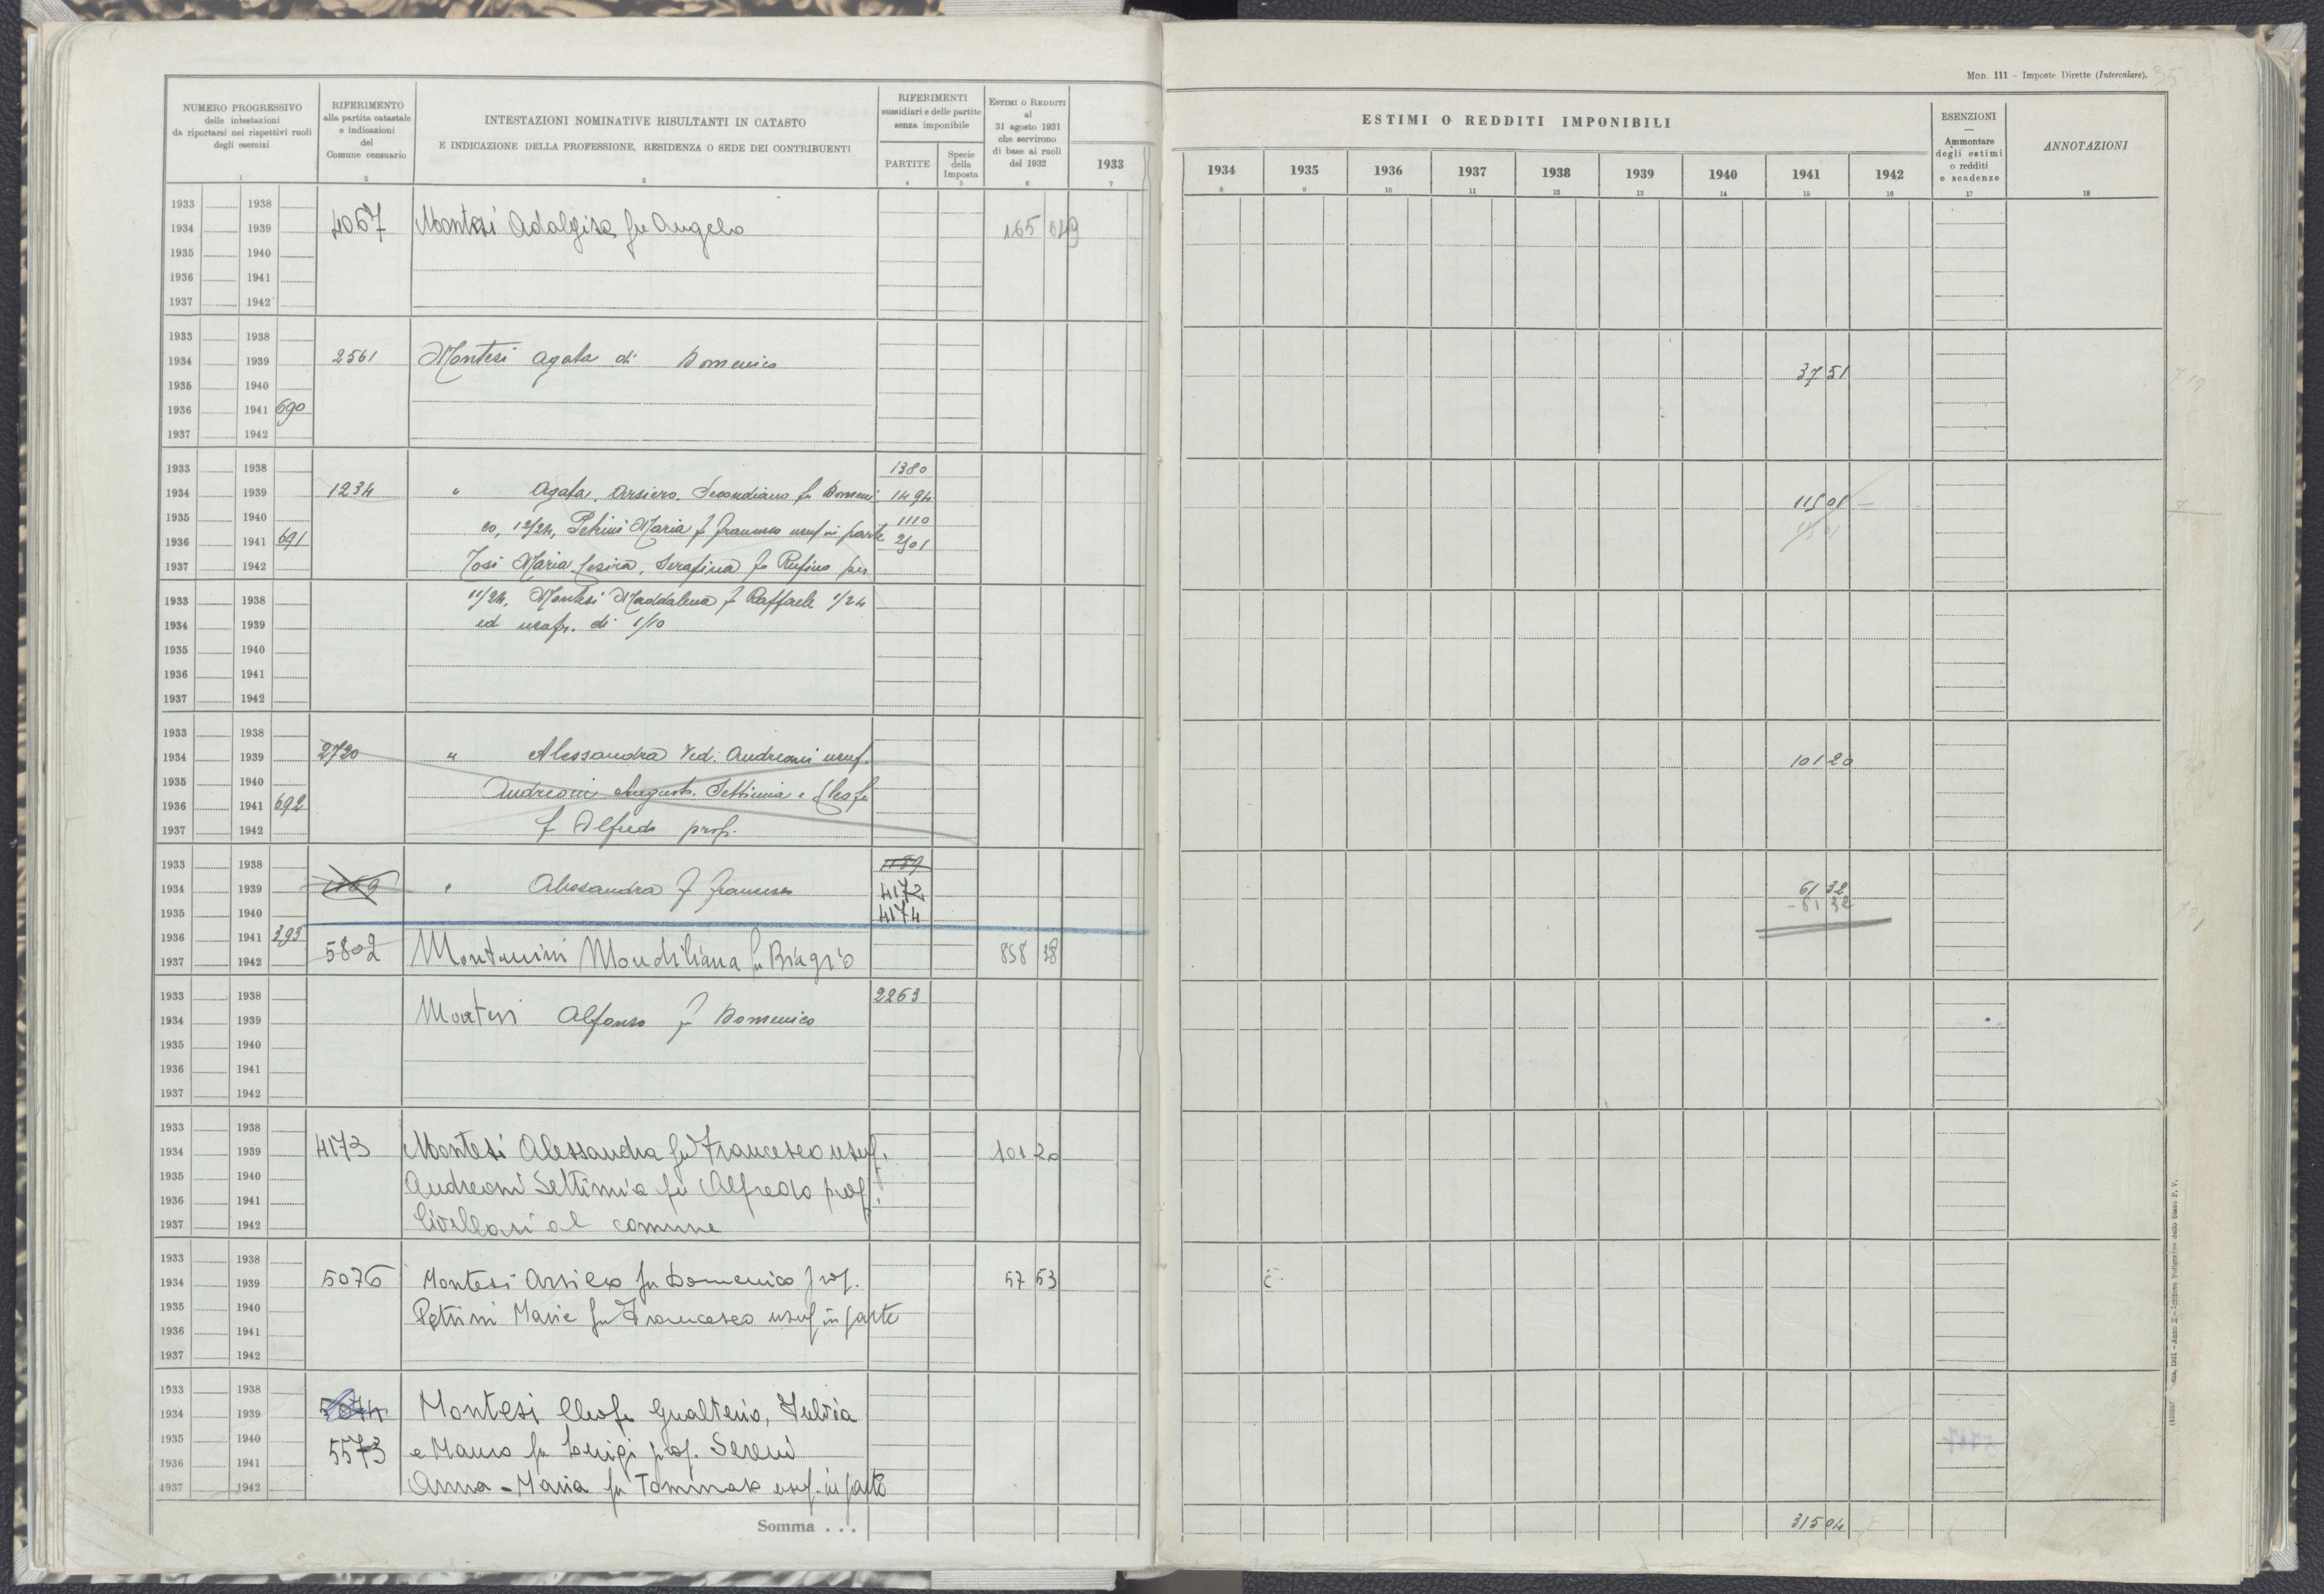 Mon. 111 – Imposte Dirette (Intercalare). 35
NUMERO PROGRESSIVO
delle intestazioni
da riportarsi nei rispettivi ruoli
degli esercizi
1
RIFERIMENTO
alla partita catastale
e indicazioni
del
Comune censuario
2
INTESTAZIONI NOMINATIVE RISULTANTI IN CATASTO
E INDICAZIONE DELLA PROFESSIONE, RESIDENZA O SEDE DEI CONTRIBUENTI
3
RIFERIMENTI
sussidiari e delle partite
senza imponibile
PARTITE
4
Specie
della
Imposta
5
ESTIMI O REDDITI
al
31 agosto 1931
che servirono
di base ai ruoli
del 1932
6
1933
7
ESTIMI O REDDITI IMPONIBILI
1934 1935 1936 1937 1938 1939 1940 1941 1942
8 9 10 11 12 13 14 15 16
ESENZIONI
—
Ammontare
degli estimi
o redditi
e scadenze
17
ANNOTAZIONI
18
1933 1938
1934 1939 4067 Montesi Adalgisa fu Angelo 165
1935 1940
1936 1941
1937 1942
1933 1938
1934 1939 2561 Montesi Agata di Domenico 37 51
1935 1940
1936 1941 690
1937 1942
1933 1938 1380
1934 1939 1234 " Agata, Arsiero, Secondiano fu Domeni 1494 115 01
1935 1940 co, 12/24, Petrini Maria f Francesco usuf in parte 1110
1936 1941 691 2501
1937 1942 Tosi Maria Cesira, Serafina fu Rufino per
1933 1938 11/24, Montesi Maddalena f Raffaele 1/24
1934 1939 ed usufr. di 1/10
1935 1940
1936 1941
1937 1942
1933 1938
1934 1939 2720 " Alessandra Ved. Andreani usuf. 101 20
1935 1940 Andreani Augusto, Settimia e
1936 1941 692
1937 1942 f Alfredo prop.
1933 1938
1934 1939 " Alessandra f Francesco 4172 61 32
1935 1940 4174 – 61 32
1936 1941 293
1937 1942 5802 Montanini Mondiliana fu Biagio 858 38
1933 1938 2263
1934 1939 Montesi Alfonso f Domenico
1935 1940
1936 1941
1937 1942
1933 1938
1934 1939 4173 Montesi Alessandra fu Francesco usuf. 101 20
1935 1940 Andreani Settimia fu Alfredo prop.
1936 1941
1937 1942 livellari al comune
1933 1938
1934 1939 5076 Montesi Arsiero fu Domenico prop. 57 53
1935 1940 Petrini Maria fu Francesco usuf in parte
1936 1941
1937 1942
1933 1938
1934 1939 5074 Montesi Cleofe Gualterio, Fulvia
1935 1940 5573 e Mauro fu Luigi prop. Sereni
1936 1941
1937 1942 Anna-Maria fu Tommaso usuf. in parte
Somma . . . 315 04